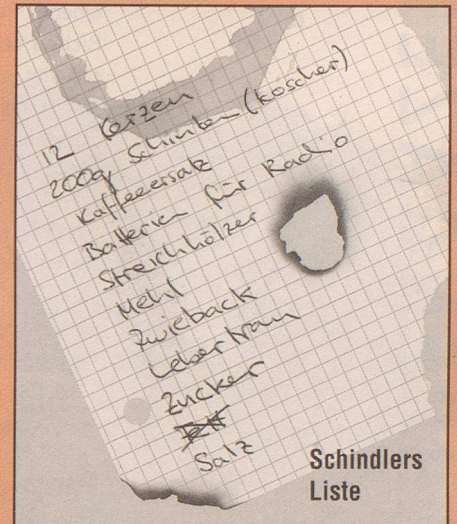 12 Kerzen
200g Schinken (koscher)
Kaffeeersatz
Batterien für Radio
Streichhölzer
Mehl
Zwieback
Lebertran
Zucker
Salz
Schindlers
Liste